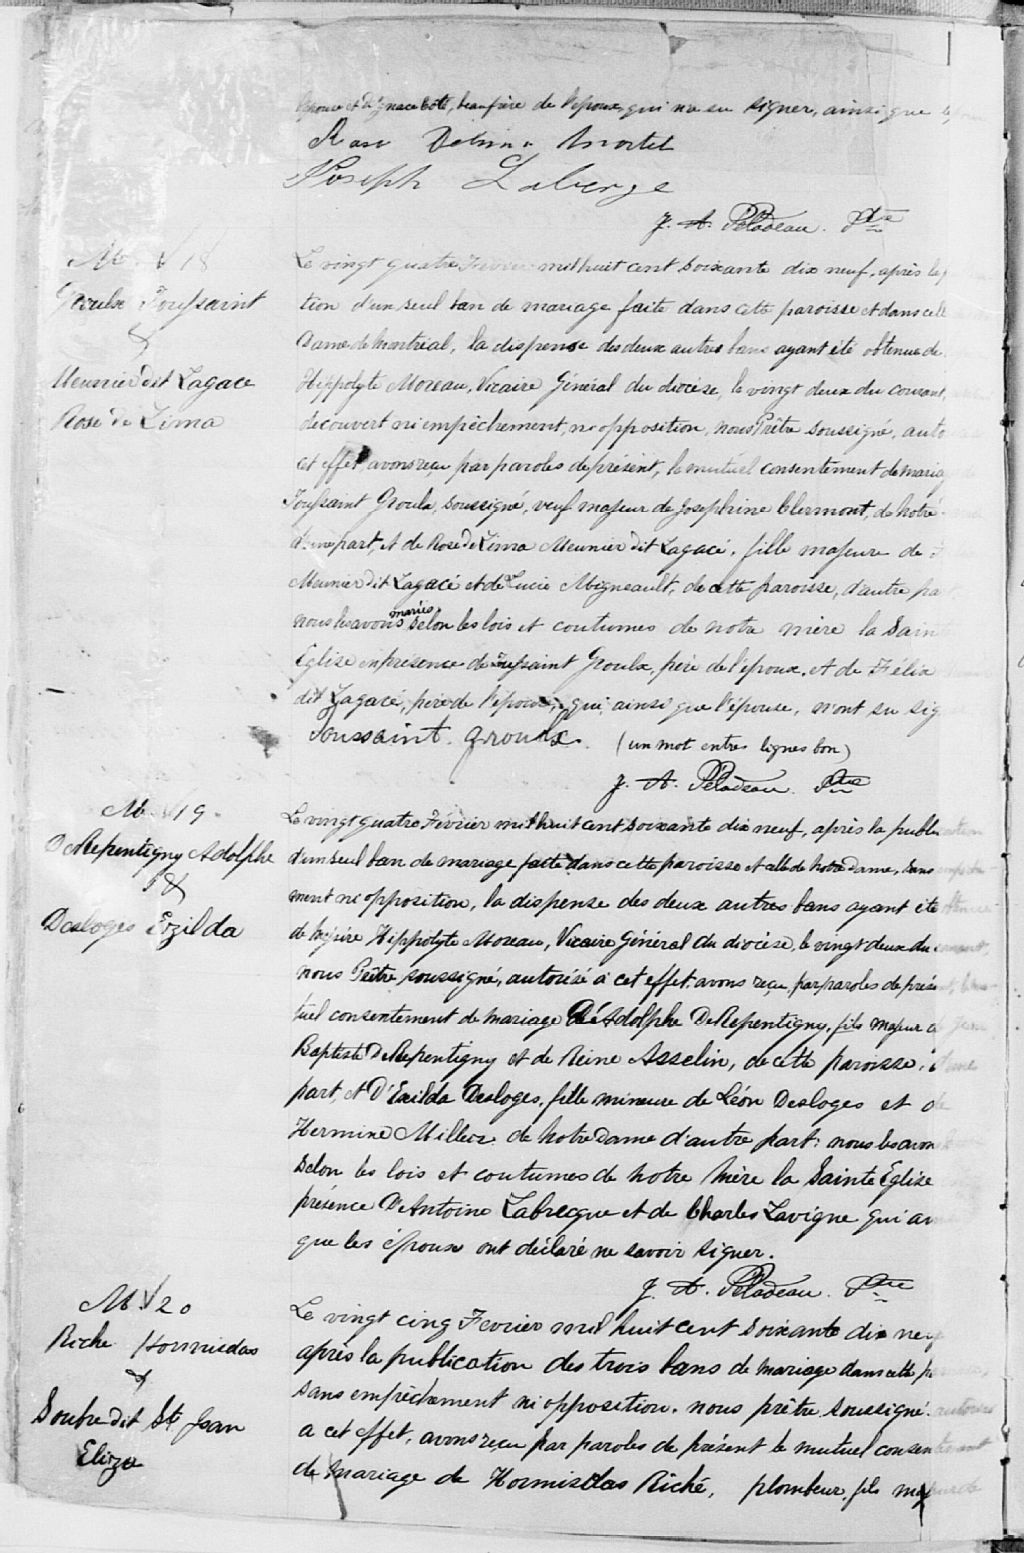 l'épouse et d'Ignace Coté, beaufrère de l'époux, qui n'a su signer, ainsi que
Rose Delima Martel
Joseph Laberge
J. A. Péladeau. Ptre
M. 18
Groulx Toussaint
&
Meunier dit Lagacé
Rose de Lima
Le vingt quatre Fevrier mil huit cent soixante dix neuf, après la
tion d'un seul ban de mariage faite dans cette paroisse et dans celle
Dame de Montréal, la dispense des deux autres bans ayant été obtenue de
Hippolyte Moreau, Vicaire Général du diocèse, le vingt deux du courant,
découvert ni empêchement, ni opposition, nous Prêtre soussigné, auto
cet effet, avons reçu par paroles de présent, le mutuel consentement de mariage
Toussaint Groulx, soussigné, veuf majeur de Josephine Clermont, de Notre
d'une part, et de Rose de Lima Meunier dit Lagacé, fille majeure de
Meunier dit Lagacé et de Lucie Migneault, de cette paroisse, d'autre pa
mariés
nous les avons selon les lois et coutumes de notre mère la Sain
Eglise en présence de Toussaint Groulx, père de l'époux, et de Félix
dit Lagacé, père de l'épouse, qui, ainsi que l'épouse, n'ont su sig
Toussaint. Groulx. (un mot entre lignes bon)
J. A. Péladeau. Ptre
M. 19.
DeRepentigny Adolphe
&
Desloges Exzilda
Le vingt quatre Fevrier mil huit cent soixante dix neuf, après la publication
d'un seul ban de mariage faite dans cette paroisse et celle de Notre Dame, sans empêche
ment ni opposition, la dispense des deux autres bans ayant été obtenue
de Hippolyte Moreau, Vicaire Général du diocèse, le vingt deux du courant,
nous Prêtre soussigné, autorisé à cet effet, avons reçu, par paroles de présent, le mu
tuel consentement de mariage de Adolphe DeRepentigny, fils majeur de Jean
Baptiste DeRepentigny et de Reine Asselin, de cette paroisse, d'une
part, et D'Exilda Desloges, fille mineure de Léon Desloges et de
Hermine Millers de Notre Dame d'autre part: nous les avons
selon les lois et coutumes de notre Mère la Sainte Eglise
présence D'Antoine Labrecque et de Charles Lavigne qui ai
que les époux ont déclaré ne savoir signer.
J. A. Péladeau. Ptre
M 20
Riche Hormisdas
&
Soubre dit St Jean
Eliza
Le vingt cinq Fevrier mil huit cent soixante dix neuf
après la publication des trois bans de mariage dans cette pa
sans empêchement ni opposition, nous prêtre soussigné autorisé
a cet effet, avons reçu par paroles de présent le mutuel consentement
de mariage de Hormisdas Riché, plombeur, fils majeur de